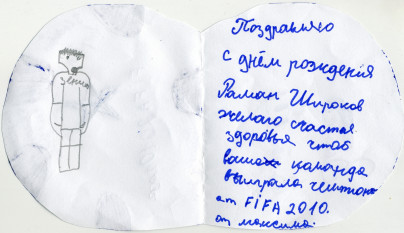 Зенит
Поздравляю
с днём рождения
Раман Широков
желаю счастья
здоровья чтоб
ваша команда
выиграла чемпион
ат FiFA 2010.
от максима.